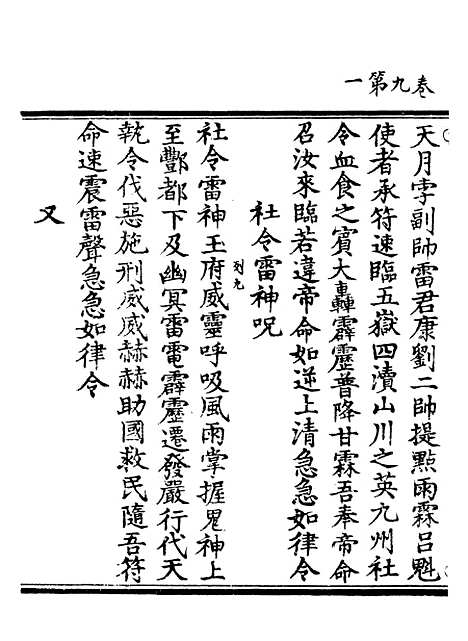 卷九第一
天月孛副帥雷君康劉二帥提點雨霖呂魁
使者承符速臨五嶽四瀆山川之英九州社
令血食之賓大轟霹靂普降甘霖吾奉帝命
召汝來臨若違帝命如逆上清急急如律令
社令雷神呪
列九
社令雷神王府威靈呼吸風雨掌握鬼神上
至酆都下及幽冥雷電霹靂遷發嚴行代天
執令伐惡施刑威威赫赫助國救民隨吾符
命速震雷聲急急如律令
又